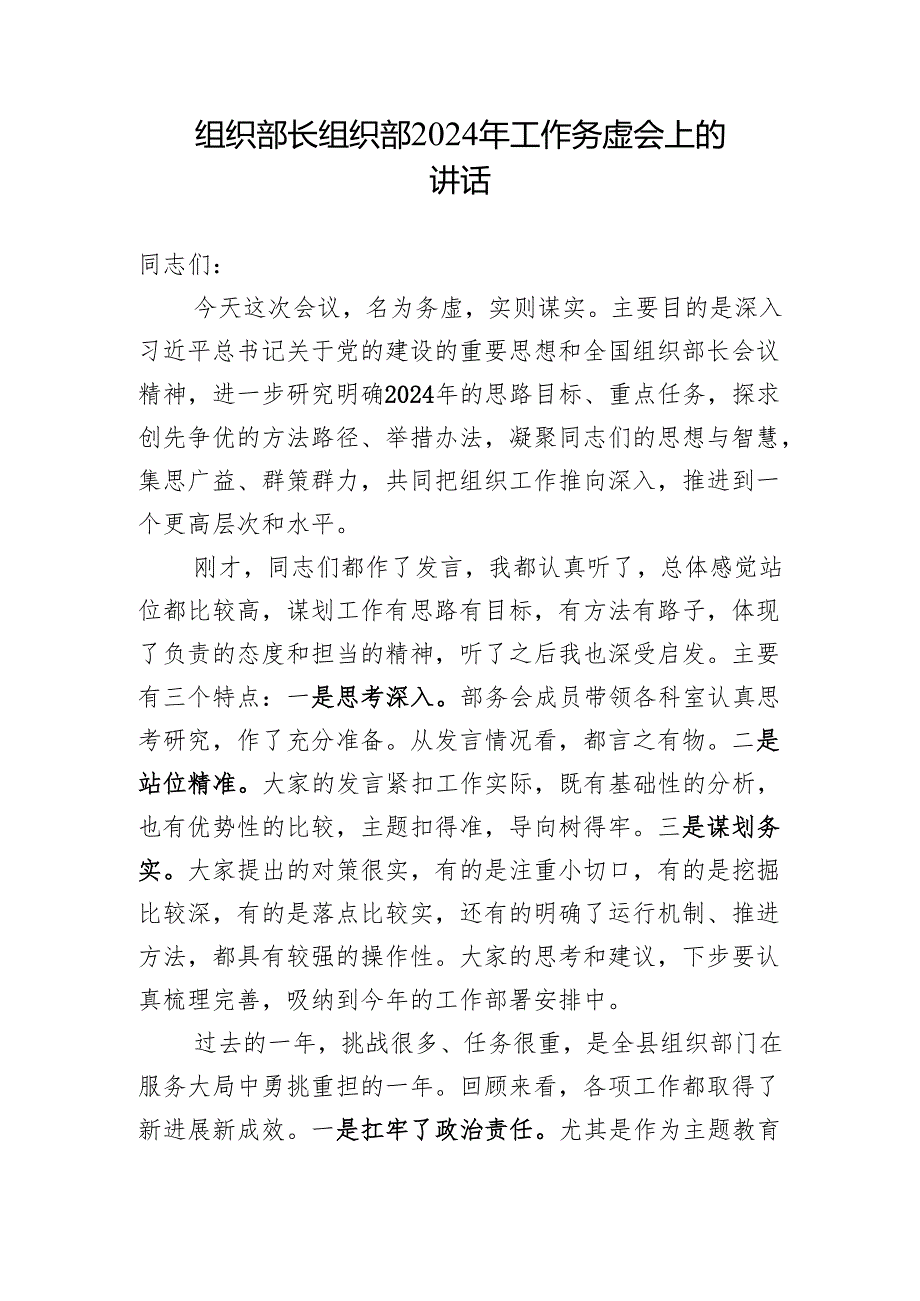 组织部长组织部2024年工作务虚会上的
讲话
同志们：
今天这次会议，名为务虚，实则谋实。主要目的是深入
习近平总书记关于党的建设的重要思想和全国组织部长会议
精神，进一步研究明确2024年的思路目标、重点任务，探求
创先争优的方法路径、举措办法，凝聚同志们的思想与智慧，
集思广益、群策群力，共同把组织工作推向深入，推进到一
个更高层次和水平。
刚才，同志们都作了发言，我都认真听了，总体感觉站
位都比较高，谋划工作有思路有目标，有方法有路子，体现
了负责的态度和担当的精神，听了之后我也深受启发。主要
有三个特点：一是思考深入。部务会成员带领各科室认真思
考研究，作了充分准备。从发言情况看，都言之有物。二是
站位精准。大家的发言紧扣工作实际，既有基础性的分析，
也有优势性的比较，主题扣得准，导向树得牢。三是谋划务
实。大家提出的对策很实，有的是注重小切口，有的是挖掘
比较深，有的是落点比较实，还有的明确了运行机制、推进
方法，都具有较强的操作性。大家的思考和建议，下步要认
真梳理完善，吸纳到今年的工作部署安排中。
过去的一年，挑战很多、任务很重，是全县组织部门在
服务大局中勇挑重担的一年。回顾来看，各项工作都取得了
新进展新成效。一是扛牢了政治责任。尤其是作为主题教育